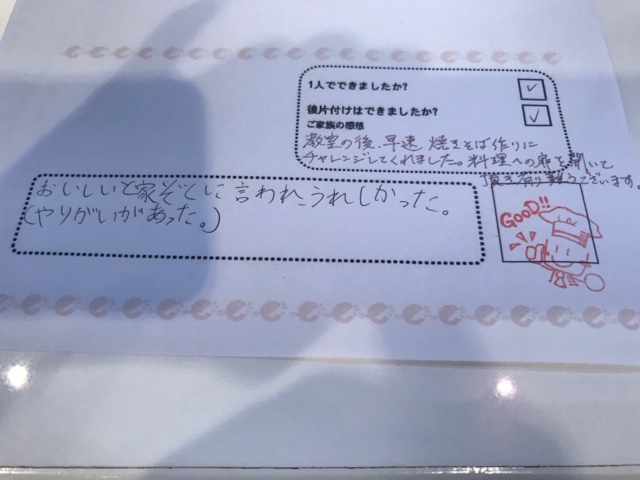 1人でできましたか?
後片付けはできましたか?
ご家族の感想
教室の後、早速 焼きそば作りに
チャレンジしてくれました。料理への扉を開いて
頂き有り難うございます。
おいしいと家ぞくに言われ、うれしかった。
(やりがいがあった。)
GOOD!!